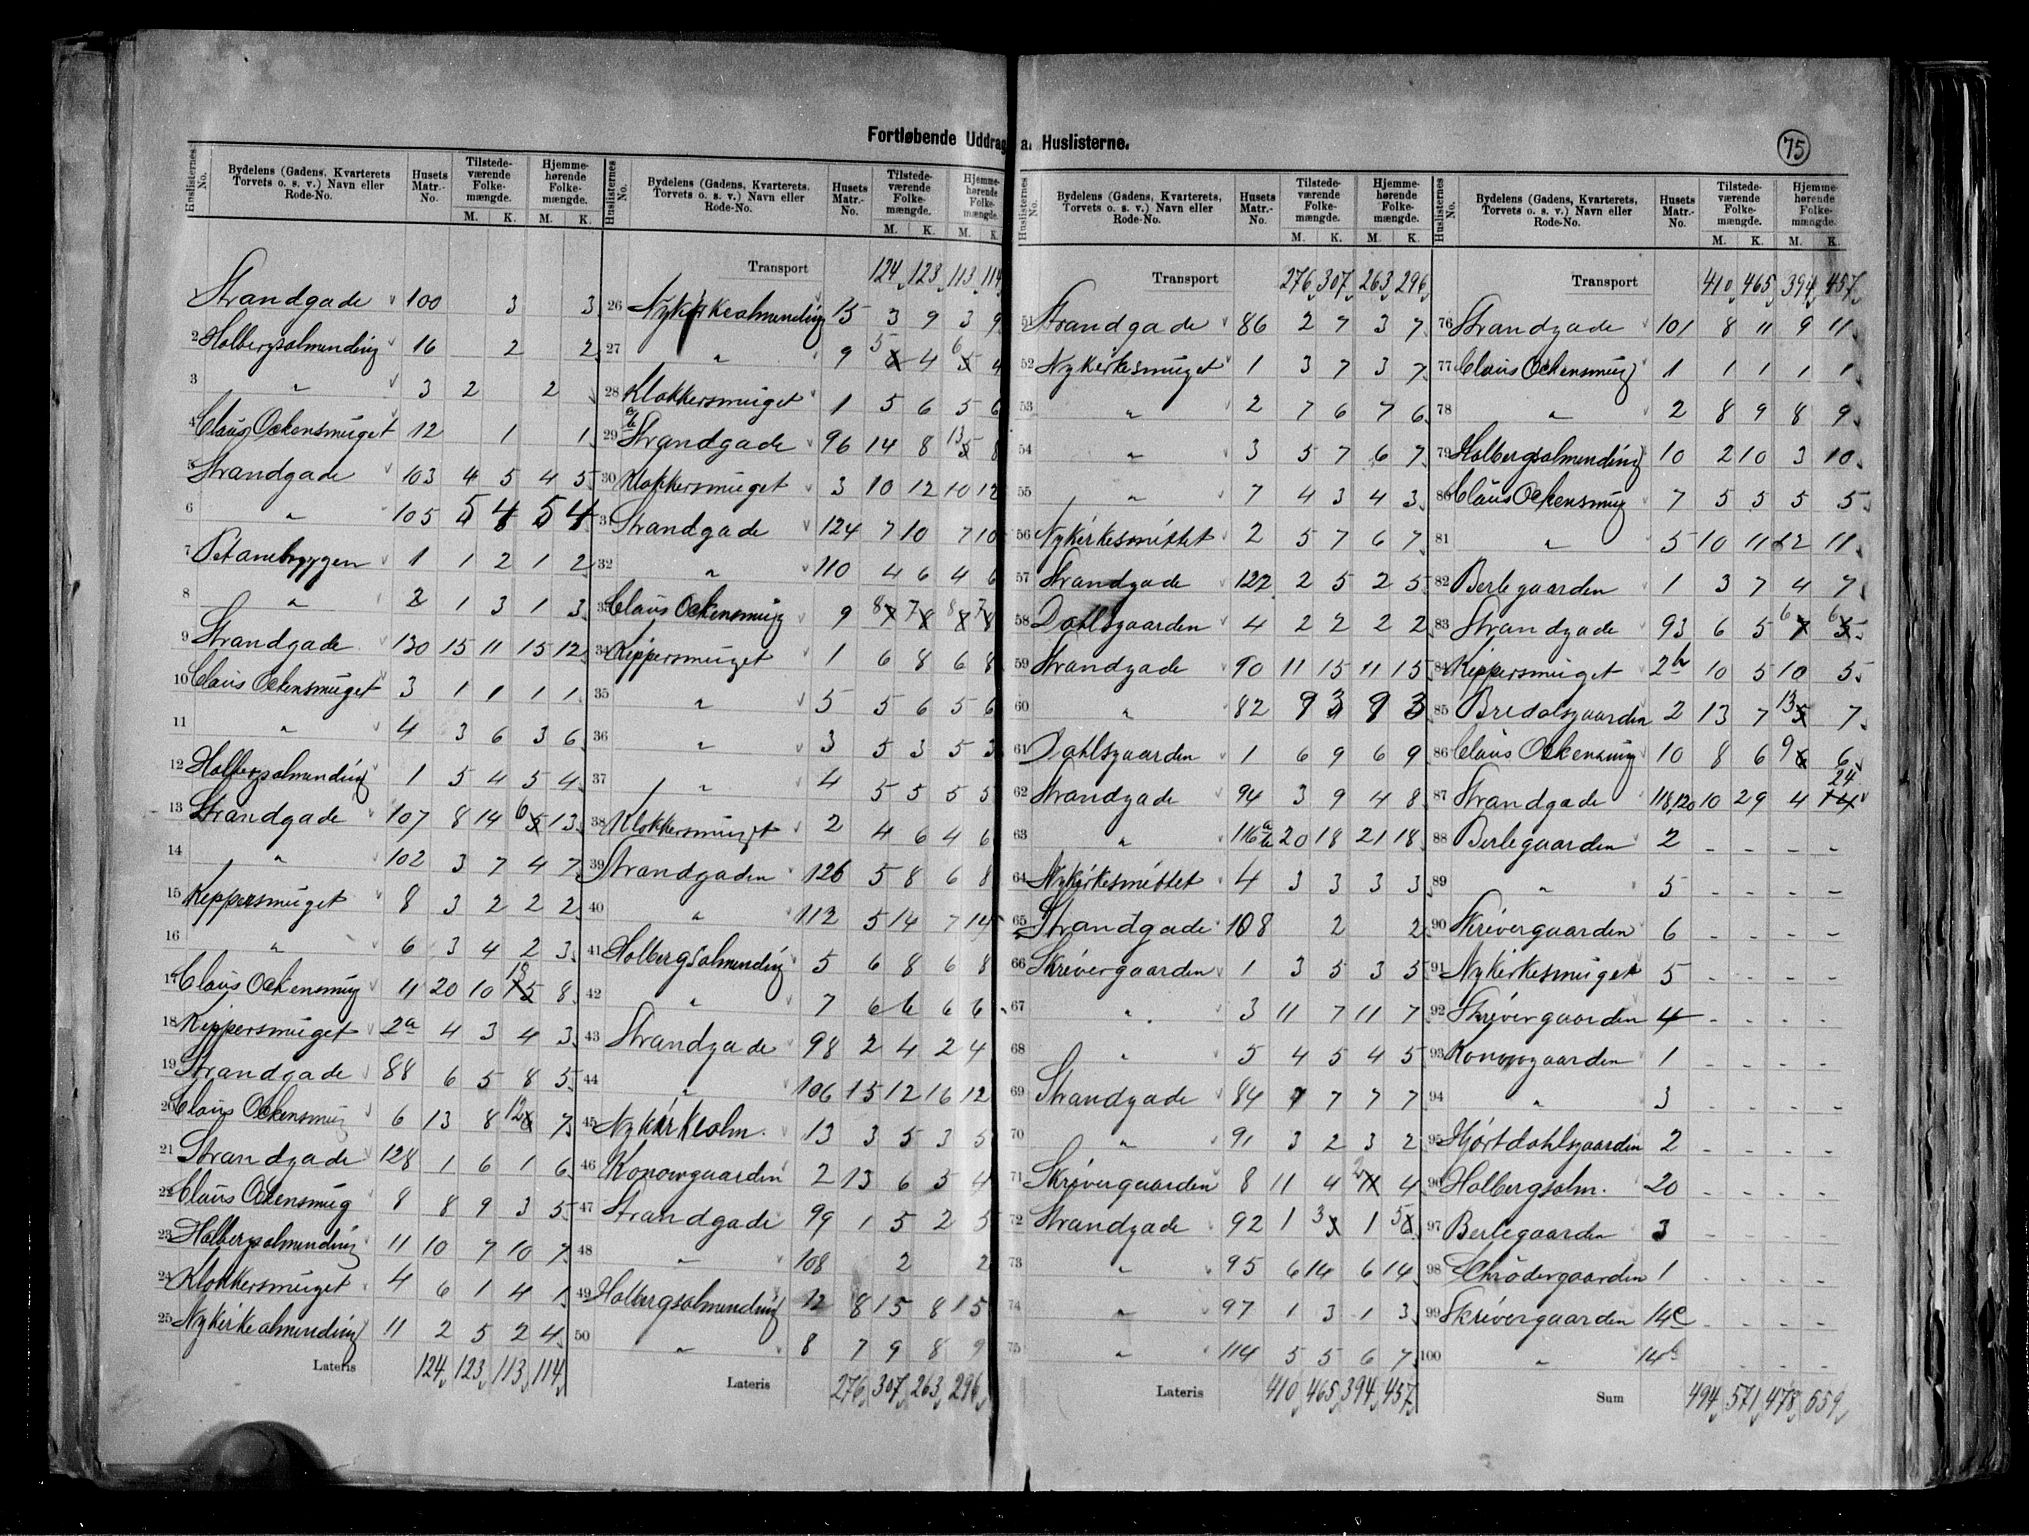 Fortløbende Uddrag a. Huslisterne.
75
Huslisternes No. | Bydelens (Gadens, Kvarterets Torvets o. s. v.) Navn eller Rode-No. | Husets Matr.-No. | Tilstede-værende Folke-mængde. M. K. | Hjemme-hørende Folke-mængde. M. K.
Strandgade 100 3 3
2 Holbergsalmending 16 2 2
3 " 3 2 2
4 Claus Ockensmuget 12 1 1
5 Strandgade 103 4 5 4 5
6 " 105 5 4 5 4
7 1 1 2 1 2
8 " 2 1 3 1 3
9 Strandgade 130 15 11 15 12
10 Claus Ockensmuget 3 1 1 1 1
11 " 4 3 6 3 6
12 Holbergsalmending 1 5 4 5 4
13 Strandgade 107 8 14 6 13
14 " 102 3 7 4 7
15 Kippersmuget 8 3 2 2 2
16 " 6 3 4 2 3
17 Claus Ockensmug 11 20 10 8
18 Kippersmuget 2a 4 3 4 3
19 Strandgade 88 6 5 8 5
20 Claus Ockensmug 6 13 8 12 7
21 Strandgade 128 1 6 1 6
22 Claus Ockensmug 8 8 9 3 5
23 Holbergsalmending 11 10 7 10 7
24 Klokkersmuget 4 6 1 4 1
25 Nykirkealmending 11 2 5 2 4
Lateris 124 123 113 114
Huslisternes No. | Bydelens (Gadens, Kvarterets, Torvets o. s. v.) Navn eller Rode-No. | Husets Matr.-No. | Tilstede-værende Folke-mængde. M. K. | Hjemme-hørende Folke-mængde. M. K.
Transport 124 123 113 114
26 Nykirkealmending 15 3 9 3 9
27 " 9 5 4 6 4
28 Klokkersmuget 1 5 6 5 6
29 Strandgade 96 14 8 13 8
30 Klokkersmuget 3 10 12 10 12
31 Strandgade 124 7 10 7 10
32 " 110 4 6 4 6
33 Claus Ockensmug 9 8 7 8 7
34 Kippersmuget 1 6 8 6 8
35 " 5 5 6 5 6
36 " 3 5 3 5 3
37 " 4 5 5 5 5
38 Klokkersmuget 2 4 6 4 6
39 Strandgaden 126 5 8 6 8
40 " 112 5 14 7 14
41 Holbergsalmending 5 6 8 6 8
42 " 7 6 6 6 6
43 Strandgade 98 2 4 2 4
44 " 106 15 12 16 12
45 Nykirkealm. 13 3 5 3 5
46 Konowgaarden 2 13 6 5 4
47 Strandgade 99 1 5 2 5
48 " 108 2 2
49 Holbergsalmending 12 8 15 8 15
50 " 8 7 9 8 9
Lateris 276 307 263 296
Huslisternes No. | Bydelens (Gadens, Kvarterets, Torvets o. s. v.) Navn eller Rode-No. | Husets Matr.-No. | Tilstede-værende Folke-mængde. M. K. | Hjemme-hørende Folke-mængde. M. K.
Transport 276 307 263 296
51 Strandgade 86 2 7 3 7
52 Nykirkesmuget 1 3 7 3 7
53 " 2 7 6 7 6
54 " 3 5 7 6 7
55 " 7 4 3 4 3
56 Nykirkesmittet 2 5 7 6 7
57 Strandgade 122 2 5 2 5
58 Dahlsgaarden 4 2 2 2 2
59 Strandgade 90 11 15 11 15
60 " 82 9 3 9 3
61 Dahlsgaarden 1 6 9 6 9
62 Strandgade 94 3 9 4 8
63 " 116 a b 20 18 21 18
64 Nykirkesmittet 4 3 3 3 3
65 Strandgade 108 2 2
66 Skrivergaarden 1 3 5 3 5
67 " 3 11 7 11 7
68 " 5 4 5 4 5
69 Strandgade 84 7 7 7 7
70 " 91 3 2 3 2
71 Skrivergaarden 8 11 4 4
72 Strandgade 92 1 3 1 5
73 " 95 6 14 6 14
74 " 97 1 3 1 3
75 " 114 5 5 6 7
Lateris 410 465 394 457
Huslisternes No. | Bydelens (Gadens, Kvarterets, Torvets o. s. v.) Navn eller Rode-No. | Husets Matr.-No. | Tilstede-værende Folke-mængde. M. K. | Hjemme-hørende Folke-mængde. M. K.
Transport 410 465 394 457
76 Strandgade 101 8 11 9 11
77 Claus Ockensmug 1 1 1 1 1
78 " 2 8 9 8 9
79 Holbergsalmending 10 2 10 3 10
80 Claus Ockensmug 7 5 5 5 5
81 " 5 10 11 12 11
82 Berlegaarden 1 3 7 4 7
83 Strandgade 93 6 5 6 6
84 Kippersmuget 2b 10 5 10 5
85 Bredalsgaarden 2 13 7 13 7
86 Claus Ockensmug 10 8 6 9 6
87 Strandgade 118,120 10 29 4 24
88 Berlegaarden 2 - - - -
89 " 5 - - - -
90 Skrivergaarden 6 - - - -
91 Nykirkesmuget 5 - - - -
92 Skrivergaarden 4 - - - -
93 Konowgaarden 1 - - - -
94 " 3 - - - -
95 Hjortdahlsgaarden 2 - - - -
96 Holbergsalm. 20 - - - -
97 Berlegaarden 3 - - - -
98 Schrødergaarden 1 - - - -
99 Skrivergaarden 14c - - - -
100 " 14b - - - -
Sum 494 571 478 559